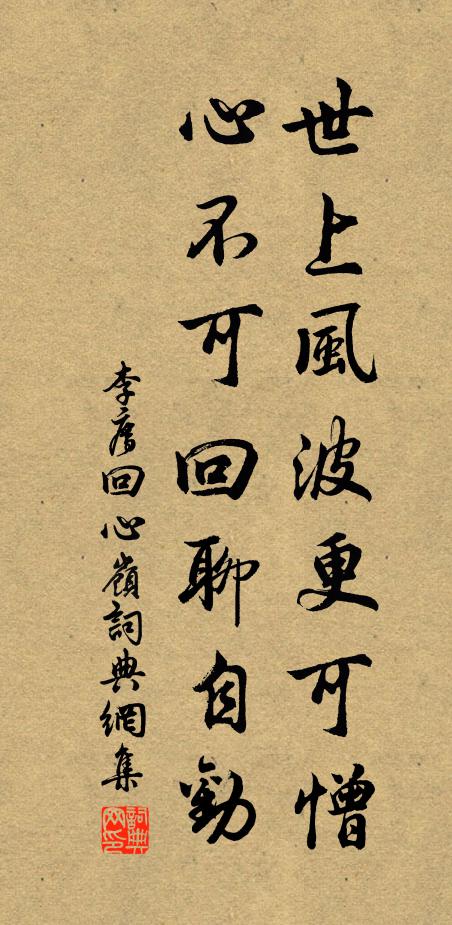 世上風波更可憎
心不可回聊自勸
李廌回心嶺詞典網集
詞典网印